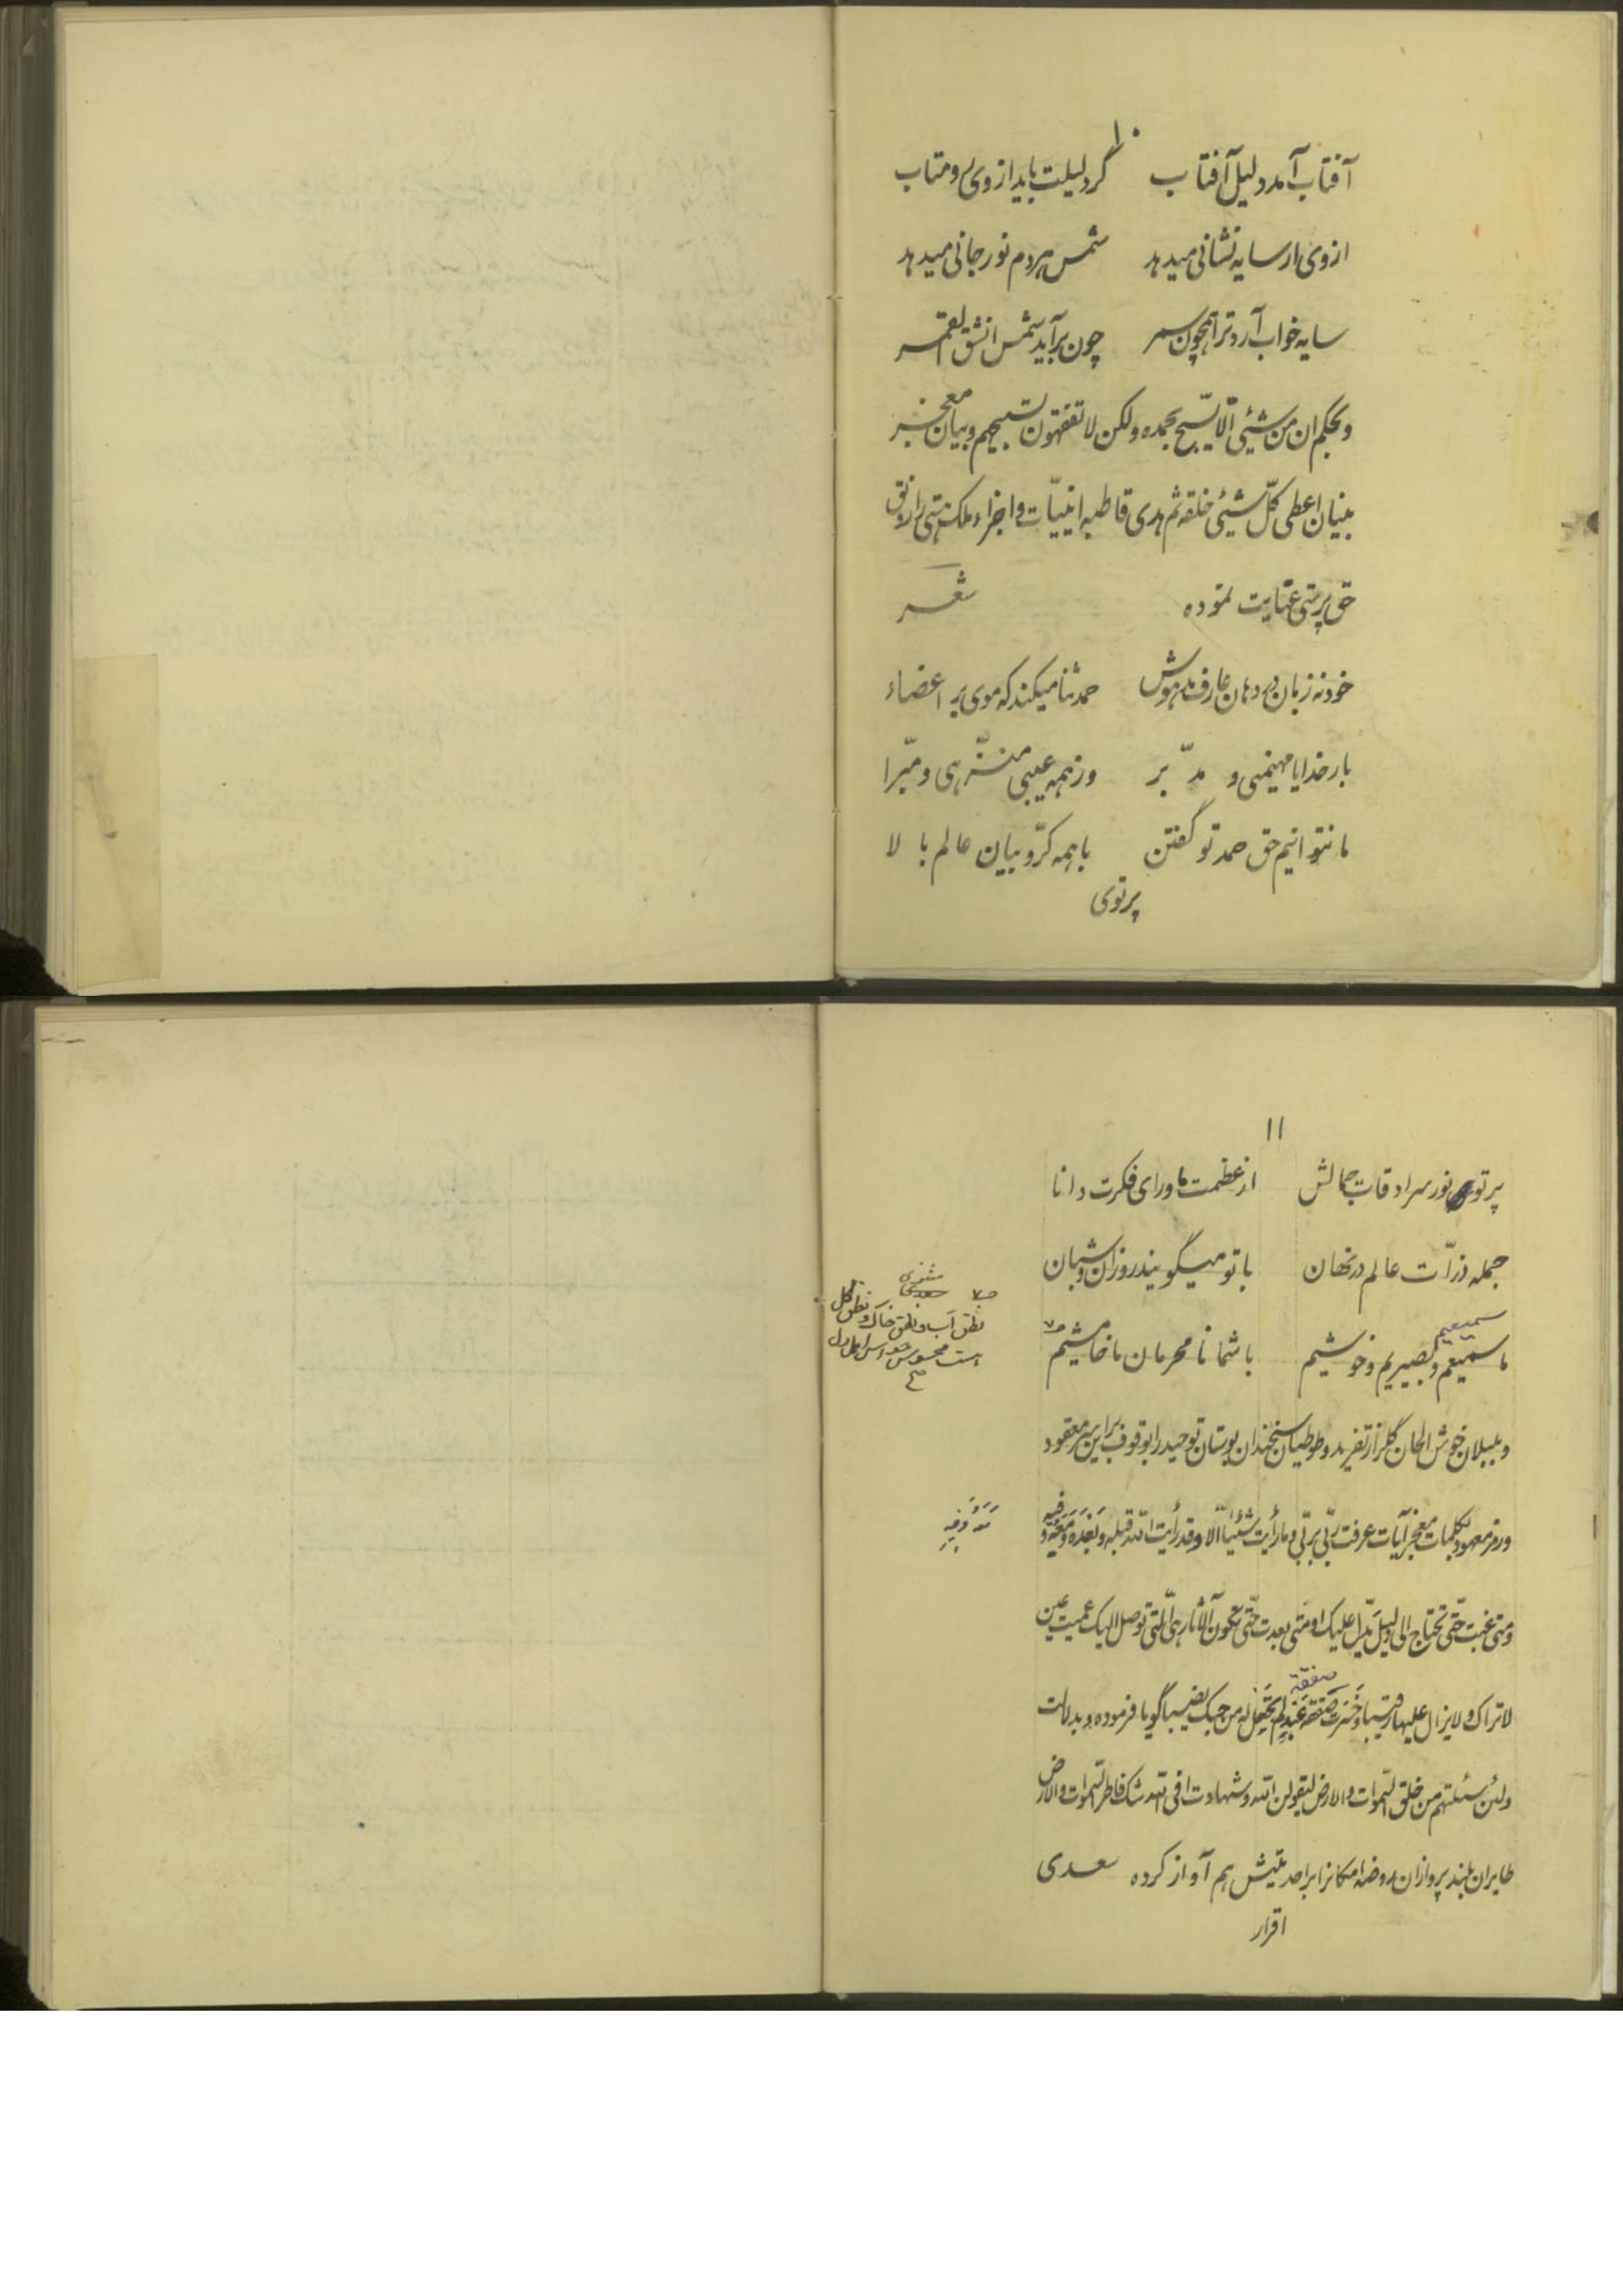 ۱۰
آفتاب آمد دلیل آفتاب گر دلیلت باید از وی رو متاب
از وی ار سایه نشانی میدهد شمس هر دم نور جانی میدهد
سایه خواب آرد ترا همچون سمر چون برآید شمس انشق القمر
و بحکم ان من شیئی الّا یسبّح بحمده ولکن لا تفقهون تسبیحهم و بیان معجز
بنیان اعطی کلّ شیئی خلقه ثم هدی قاطبه انیّات و اجزاء ملک هستی را رونق
حق پرستی عنایت نموده شعر
خود نه زبان در دهان عارف مدهوش حمد ثنا میکند که موی بر اعضاء
بار خدایا مهیمنی و مدّبر وز همه عیبی منزّهی و مبّرا
ما نتوانیم حق حمد تو گفتن با همه کرّوبیان عالم بالا
پرتوی
۱۱
پرتو نور سرادقات جمالش از عظمت ماورای فکرت دانا
جمله ذرّات عالم در نهان با تو میگویند روزان و شبان
سمیعیم
ما سمیعم و بصیریم و خوشیم با شما نامحرمان ما خامشیم
مثنوی
نطق آب و نطق خاک و نطق گل
هست محسوس حواس اهل دل
صح
و بلبلان خوش الحان گلزار تفرید و طوطیان سخندان بوستان توحید را بوقوف براین سرّ معقود
و رمز معهود بکلمات معجز آیات عرفت ربّی بربّی و ما رأیت شیئاً الّا و قد رأیت اللّه قبله و بَعْدَه و مَعَه و فیه
و متی غبت حتّی تحتاج الی دلیل یدّل علیک او متی بعدت حتّی تکون الآثار هی الّتی توصل الیک عمیت عین
صفقة
لا تراک و لا یزال علیها رقیبا و خَسِرَت صفقه عَبْدٍ لم تجعل له من حبک نصیبا گویا فرموده و بدلالت
و لئن سئلتهم من خلق السّموات و الارض لیقولن اللّه و شهادت افی اللّه شک فاطر السّموات و الارض
طایران بلند پروازان روضه امکانرا براحدیتش هم آواز کرده سعدی
اقرار